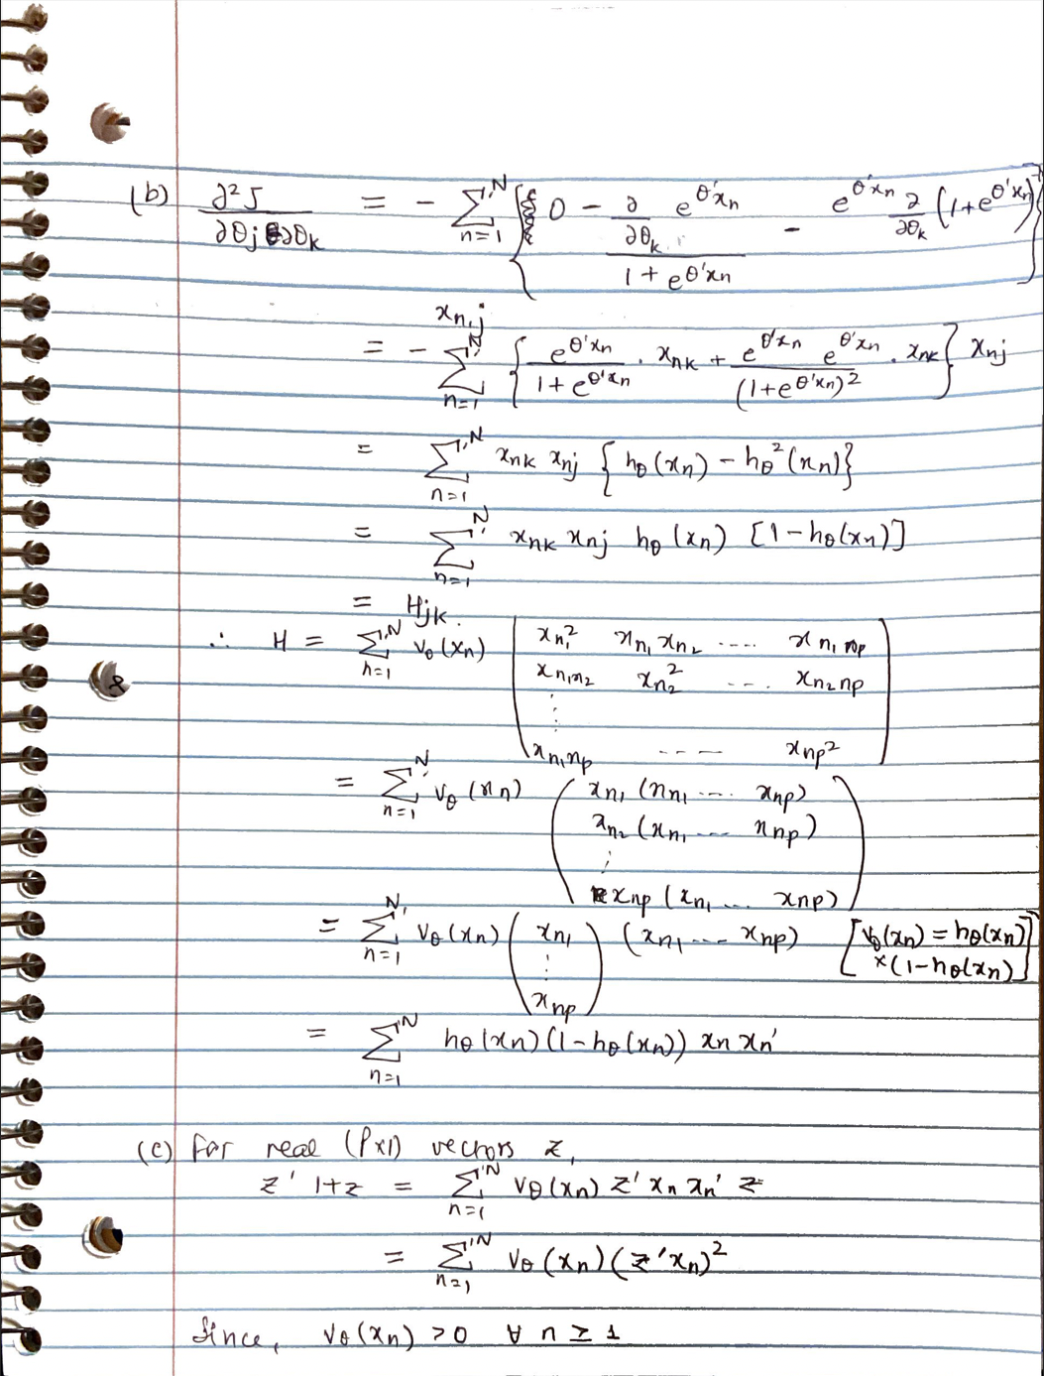 (b) ∂²J / ∂θj ∂θk = - Σ_{n=1}^{N} { 0 - ∂/∂θk e^{θ'xn} / (1 + e^{θ'xn}) - e^{θ'xn} ∂/∂θk (1+e^{θ'xn}) }
xn,j
= - Σ_{n=1}^{N} { e^{θ'xn} / (1 + e^{θ'xn}) . xnk + e^{θ'xn} e^{θ'xn} / (1+e^{θ'xn})² . xnk } xnj
= Σ_{n=1}^{N} xnk xnj { hθ(xn) - hθ²(xn) }
= Σ_{n=1}^{N} xnk xnj hθ(xn) [1 - hθ(xn)]
= Hjk.
∴ H = Σ_{n=1}^{N} vθ(xn) ( xn1² xn1 xn2 .... xn1 np
xn1n2 xn2² .... xn2np
⋮
xn1np ---- xnp² )
= Σ_{n=1}^{N} vθ(xn) ( xn1 (xn1 .... xnp)
xn2 (xn1 .... xnp)
⋮
xnp (xn1 ... xnp) )
= Σ_{n=1}^{N} vθ(xn) ( xn1 ⋮ xnp ) (xn1 .... xnp) [vθ(xn) = hθ(xn)
×(1-hθ(xn)]
= Σ_{n=1}^{N} hθ(xn)(1-hθ(xn)) xn xn'
(c) For real (P×1) vectors z,
z' Hz = Σ_{n=1}^{N} vθ(xn) z' xn xn' z
= Σ_{n=1}^{N} vθ(xn) (z'xn)²
Since, vθ(xn) > 0 ∀ n ≥ 1